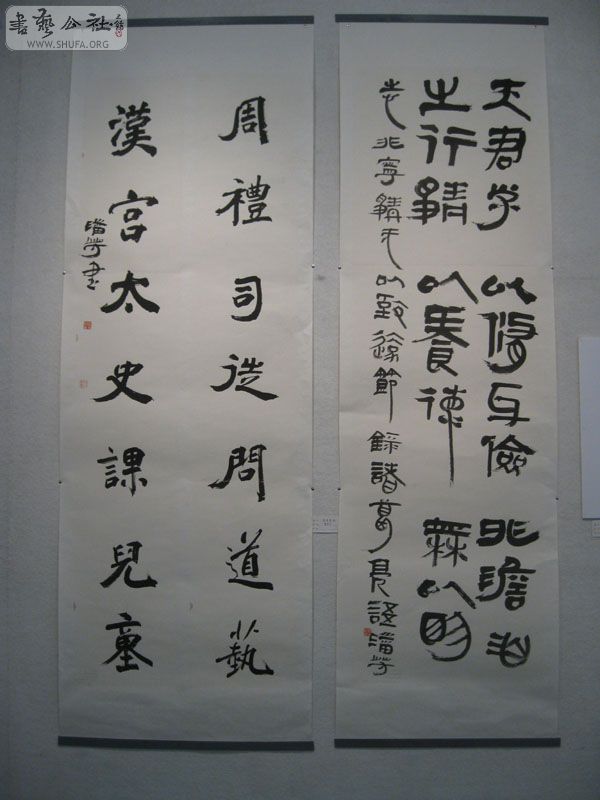 書藝公社
WWW.SHUFA.ORG
夫君子
之行靜
以修身儉
以養德
非澹泊
無以明
志非寧靜无以致遠節錄諸葛亮語
周禮司徒問道藝
漢宮太史課兒童
書